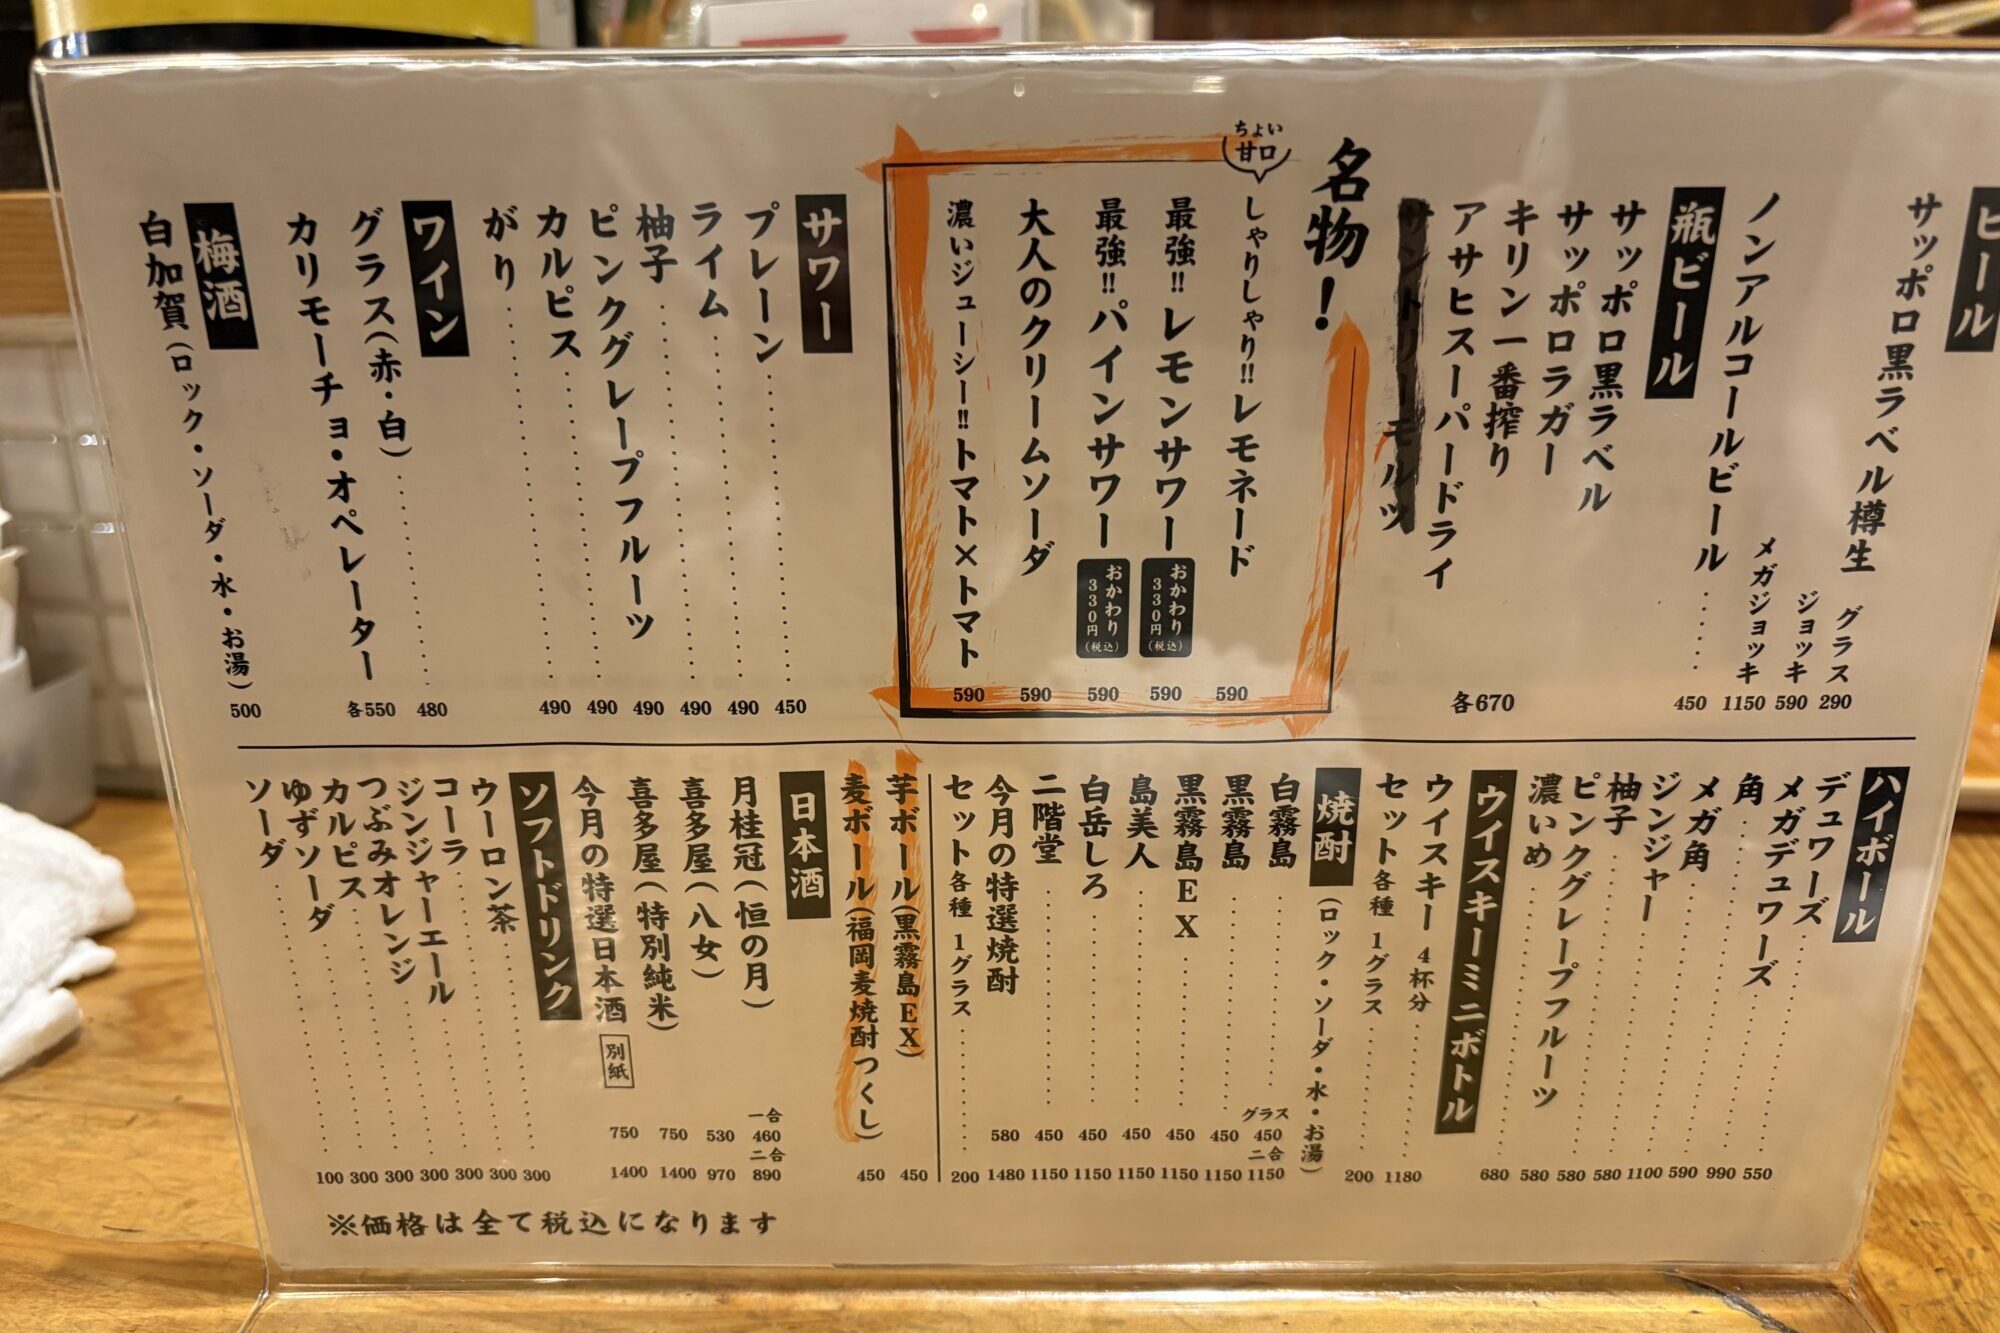 ビール
サッポロ黒ラベル樽生 グラス 290
ジョッキ 590
メガジョッキ 1150
ノンアルコールビール 450
瓶ビール
サッポロ黒ラベル
サッポロラガー
キリン一番搾り
アサヒスーパードライ
サントリーモルツ
各670
名物!
ちょい甘口
しゃりしゃり!!レモネード 590
最強!!レモンサワー おかわり330円(税込) 590
最強!!パインサワー おかわり330円(税込) 590
大人のクリームソーダ 590
濃いジューシー!!トマト×トマト 590
サワー
プレーン 450
ライム 490
柚子 490
ピンクグレープフルーツ 490
カルピス 490
がり 490
ワイン
グラス(赤・白) 480
カリモーチョ・オペレーター 各550
梅酒
白加賀(ロック・ソーダ・水・お湯) 500
ハイボール
デュワーズ 550
メガデュワーズ 990
角 590
メガ角 1100
ジンジャー 580
柚子 580
ピンクグレープフルーツ 580
濃いめ 680
ウイスキーミニボトル
ウイスキー 4杯分 1180
セット各種 1グラス 200
焼酎(ロック・ソーダ・水・お湯)
白霧島 グラス 450 二合 1150
黒霧島 450 1150
黒霧島EX 450 1150
島美人 450 1150
白岳しろ 450 1150
二階堂 450 1150
今月の特選焼酎 580 1480
セット各種 1グラス 200
芋ボール(黒霧島EX) 450
麦ボール(福岡麦焼酎つくし) 450
日本酒
月桂冠(恒の月) 一合 460 二合 890
喜多屋(八女) 530 970
喜多屋(特別純米) 750 1400
今月の特選日本酒 別紙 750 1400
ソフトドリンク
ウーロン茶 300
コーラ 300
ジンジャーエール 300
つぶみオレンジ 300
カルピス 300
ゆずソーダ 300
ソーダ 100
※価格は全て税込になります